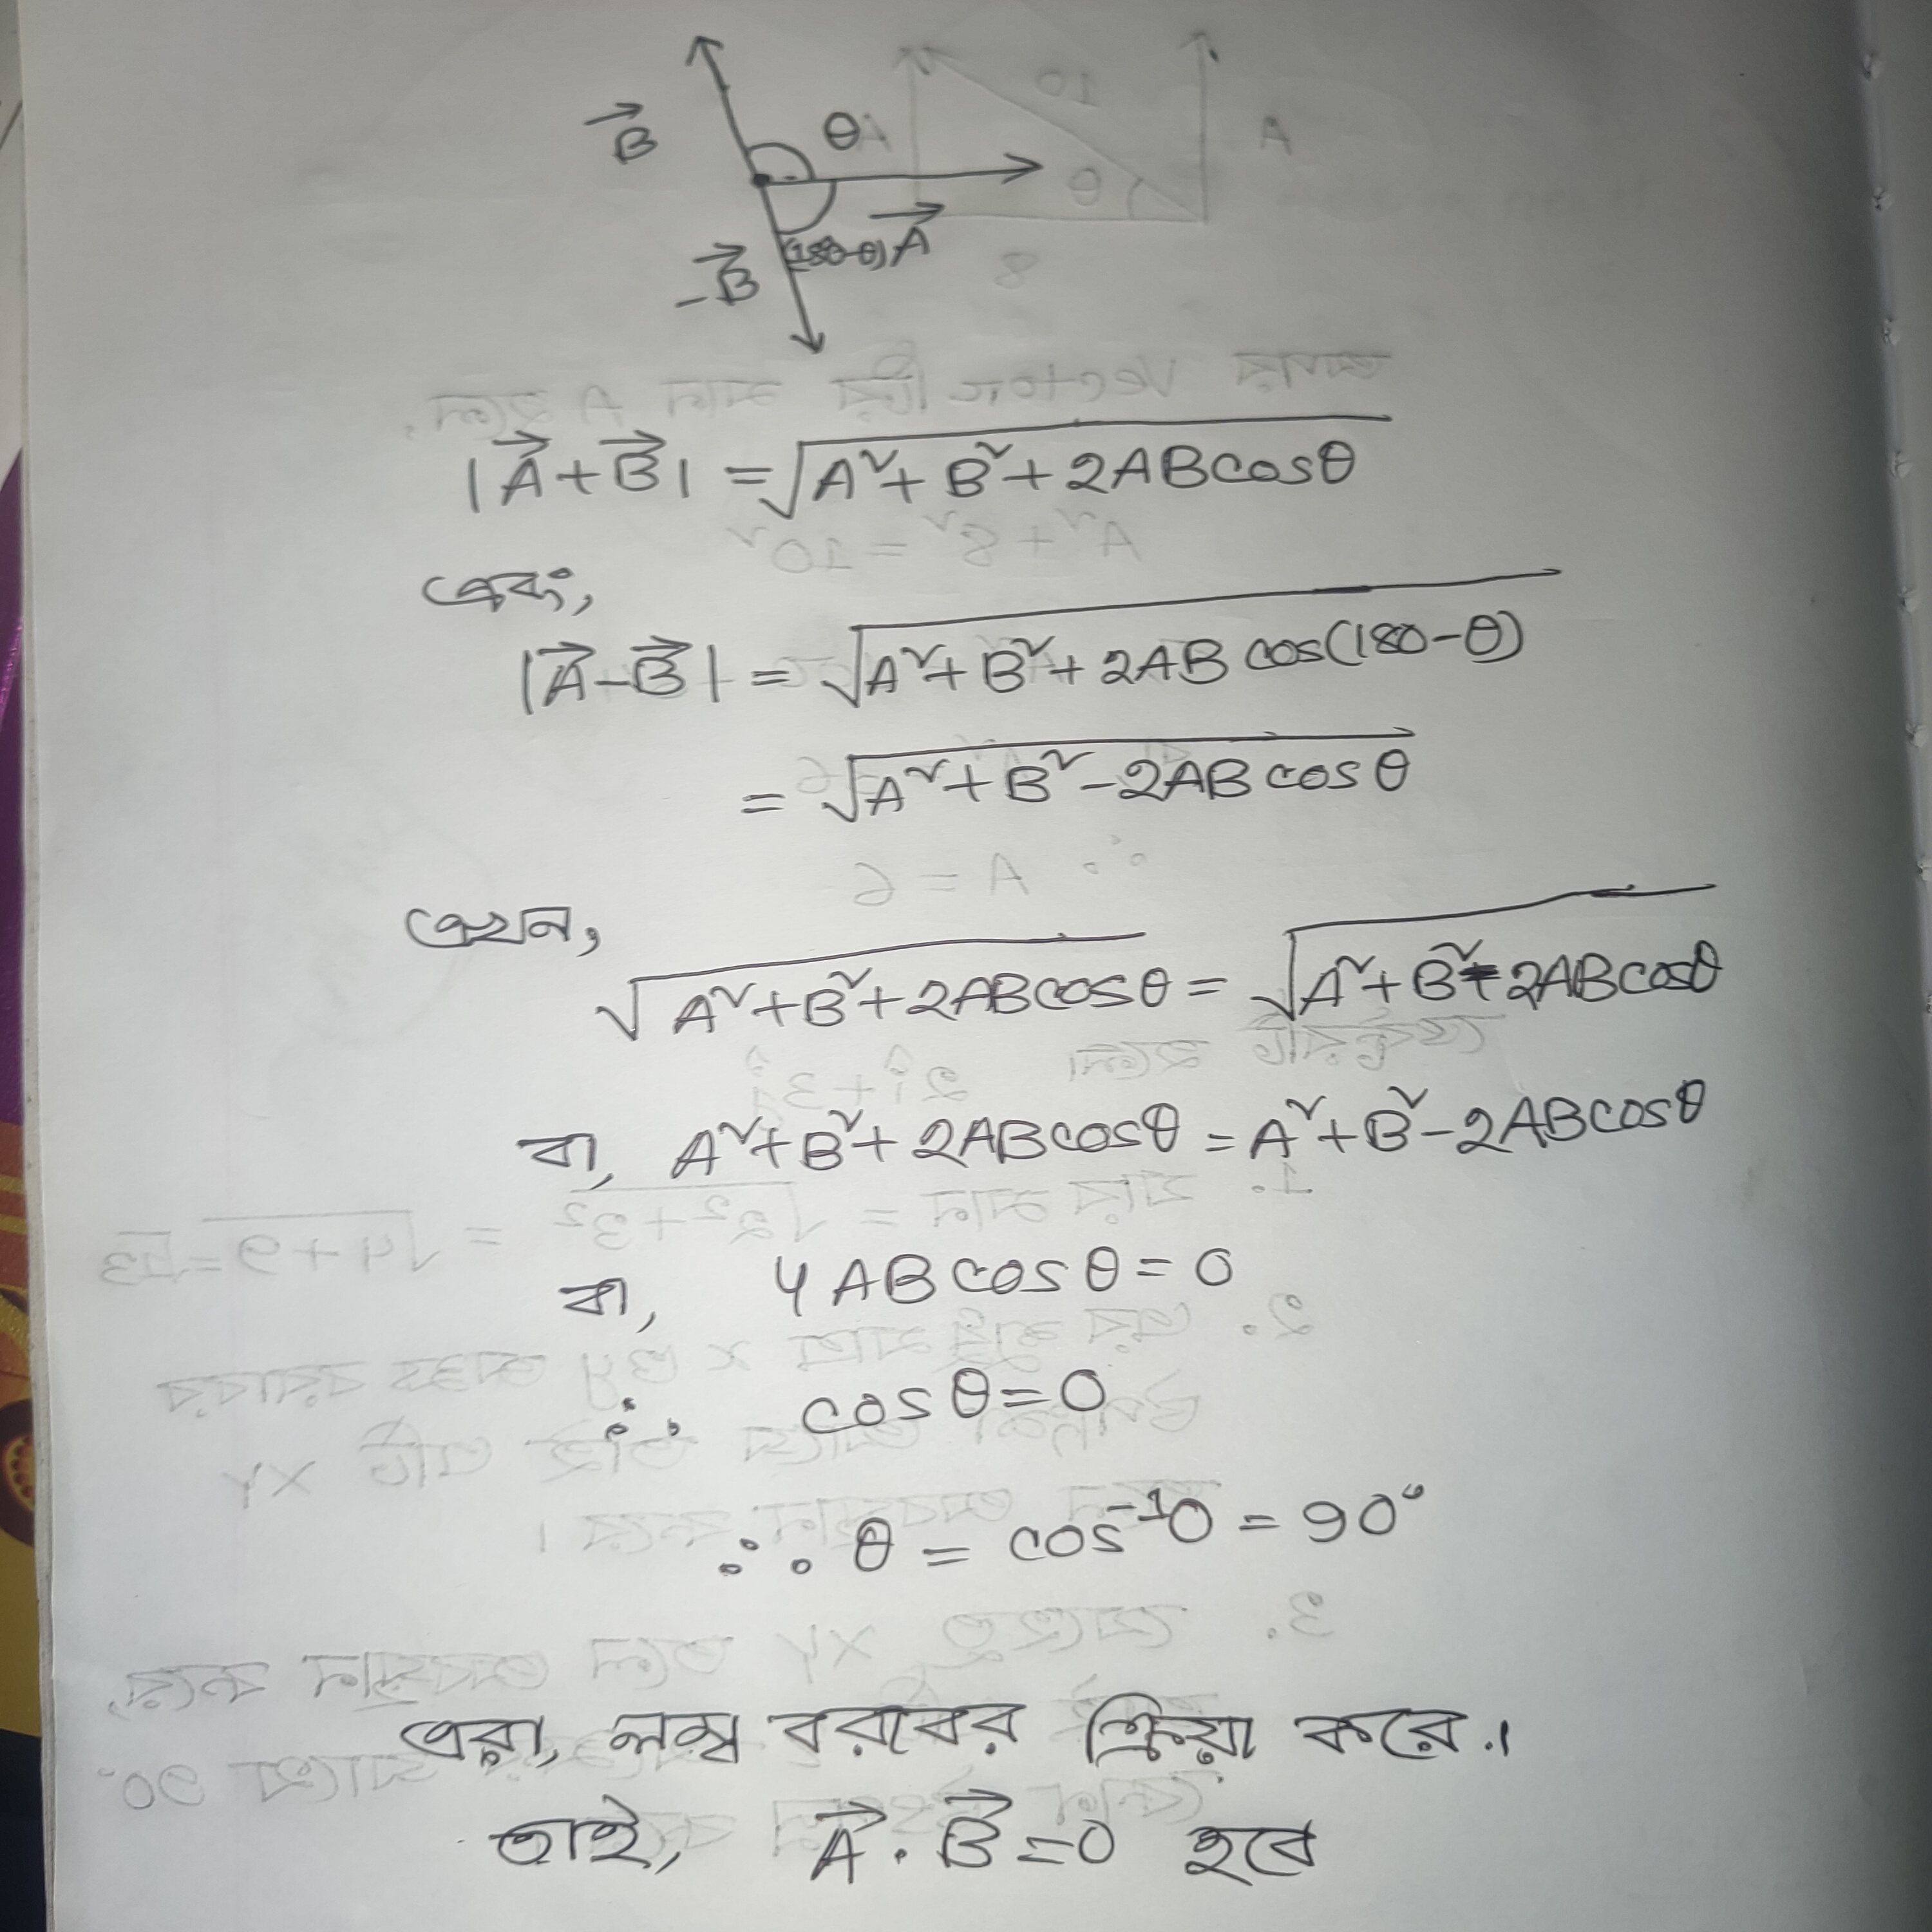 θ
B⃗
(180-θ) A⃗
-B⃗
|A⃗+B⃗| = √A²+B²+2ABcosθ
এবং,
|A⃗-B⃗| = √A²+B²+2AB cos(180-θ)
= √A²+B²-2AB cosθ
এখন,
√A²+B²+2ABcosθ = √A²+B²-2ABcosθ
বা, A²+B²+2ABcosθ = A²+B²-2ABcosθ
বা, 4ABcosθ=0
∴ cosθ=0
∴ θ = cos⁻¹0 = 90°
এরা, লম্ব বরাবর ক্রিয়া করে।
তাই, A⃗.B⃗=0 হবে